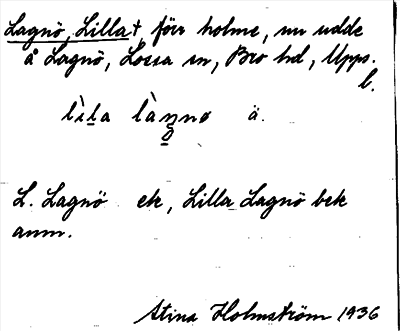 Lagnö, Lilla †, förr holme, nu udde
å Lagnö, Lossa sn, Bro hd, Upps.
l.
lìla làŋnø ä.
L. Lagnö ek, Lilla Lagnö bek
anm.
Stina Holmström 1936